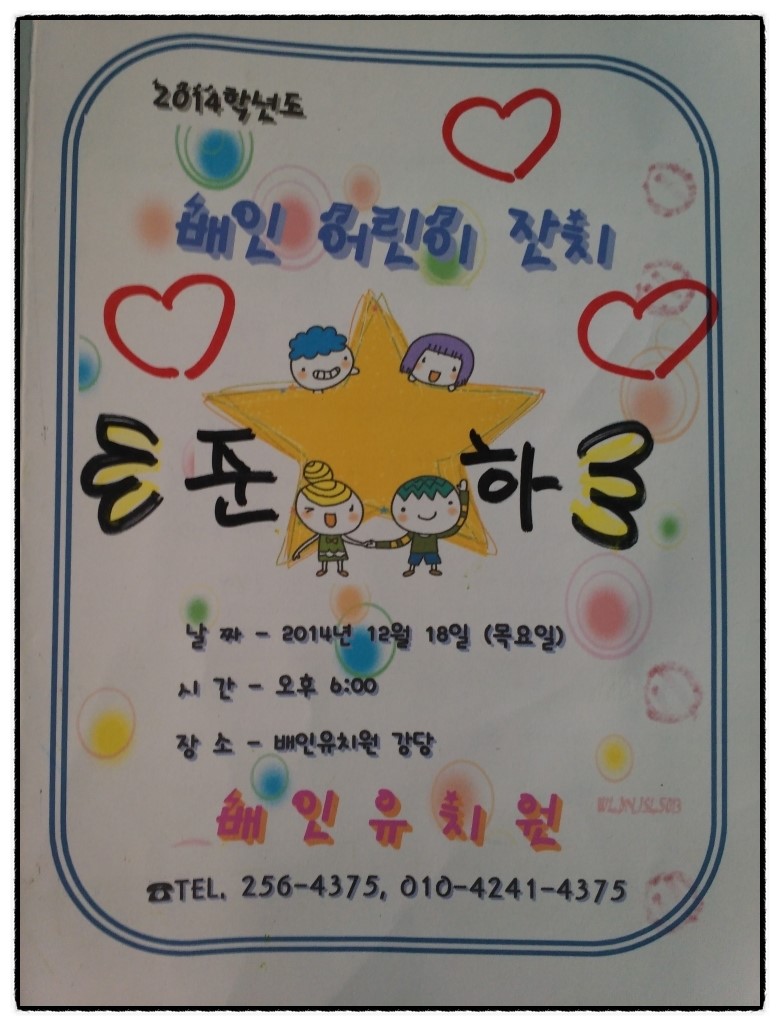 2014학년도
배인 어린이 잔치
준 하
날 짜 - 2014년 12월 18일 (목요일)
시 간 - 오후 6:00
장 소 - 배인유치원 강당
배 인 유 치 원
☎TEL. 256-4375, 010-4241-4375